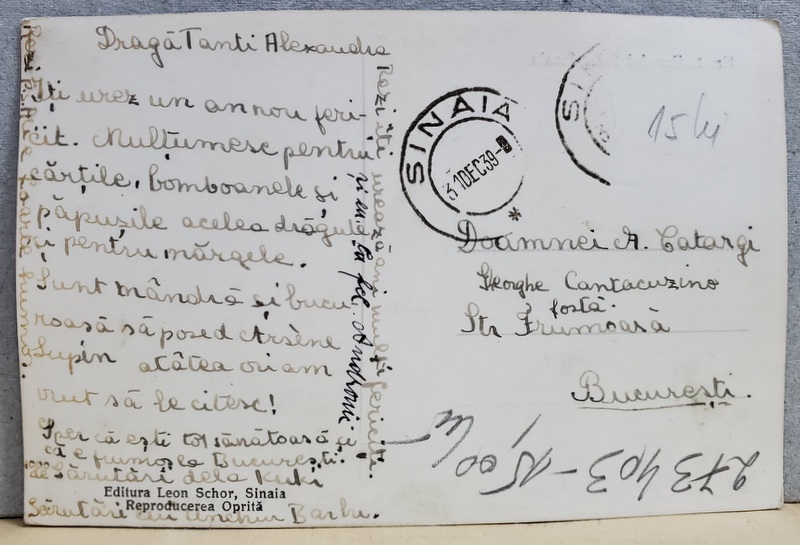 Dragă Tanti Alexandra
Îți urez un an nou feri-
cit. Mulțumesc pentru
cărțile, bomboanele și
păpușile acelea drăguțe
și pentru mărgele.
Sunt mândră și bucu
roasă să posed Arsène
Lupin atâtea ori am
vrut să le citesc!
Sper că ești tot sănătoasă și
că e frumos la București.
Sărutări dela Kuki
Sărutări lui unchiu Barbu.
Rezi îți urează ani mulți fericiți.
și eu la fel. Andronic
Editura Leon Schor, Sinaia
Reproducerea Oprită
SINAIA
31DEC39
SI
15 lei
Doamnei A. Catargi
Gheorghe Cantacuzino
fostă
Str Frumoasă
București.
273403-15,00 lei